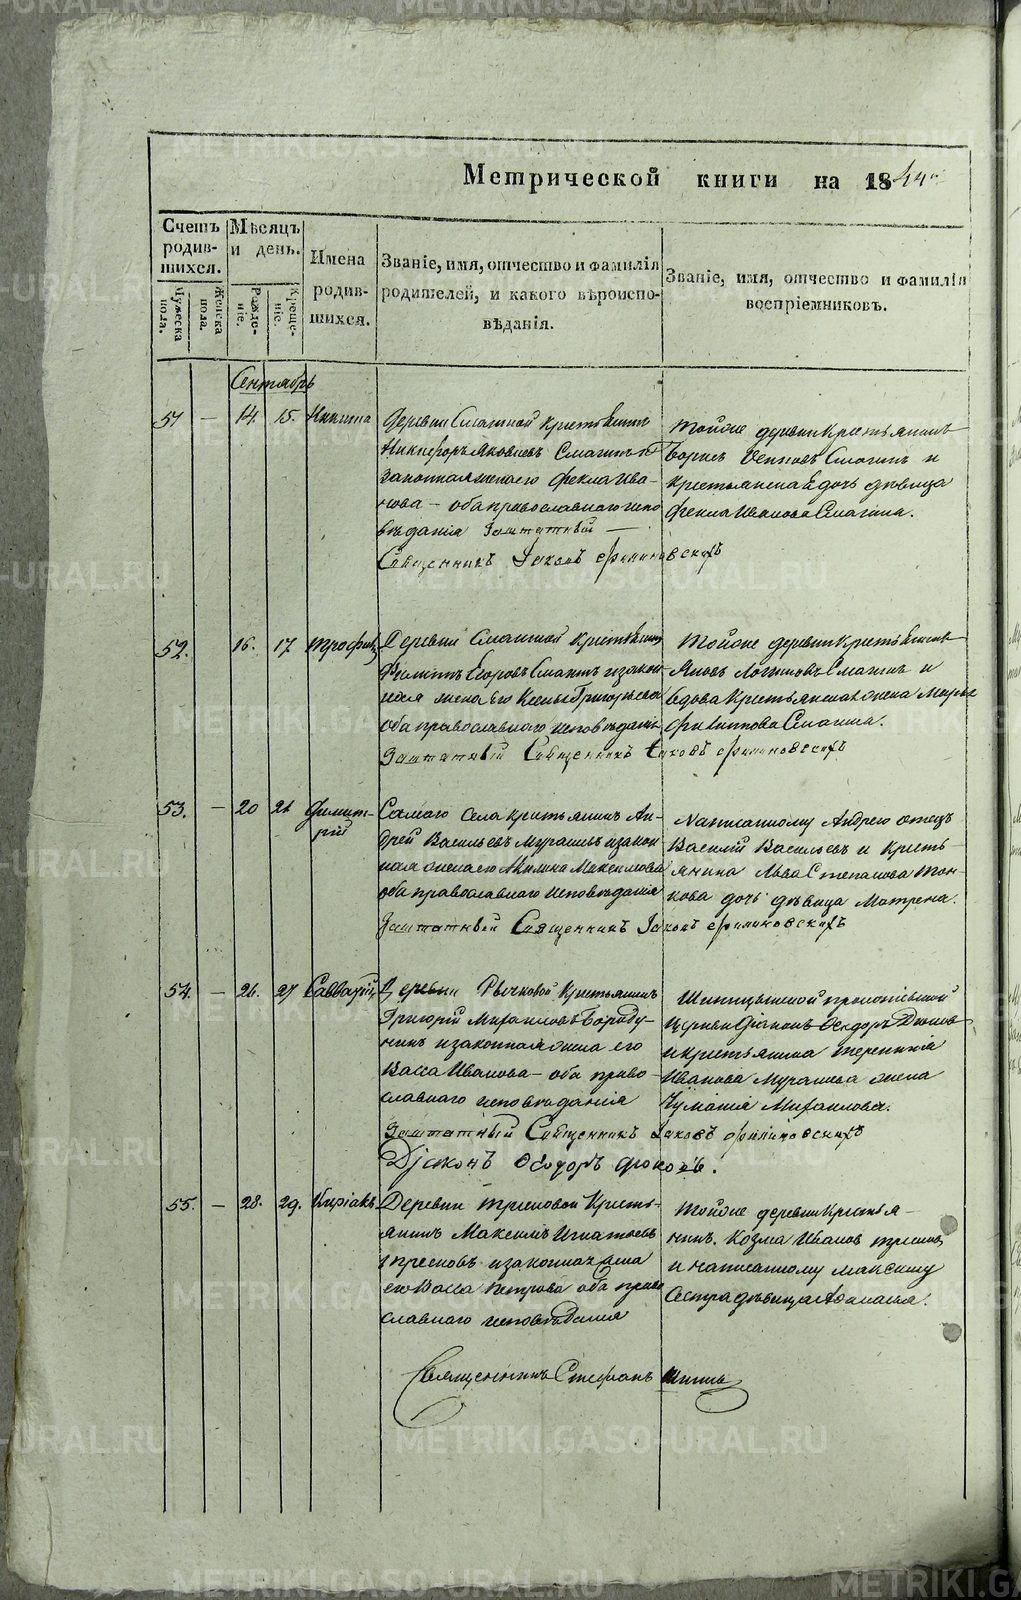 METRIKI.GASO-URAL.RU
Метрической книги на 1844
Счетъ родив- шихся.
Мѣсяцъ и день.
Имена родив- шихся.
Званіе, имя, отчество и фамилія родителей, и какого вѣроиспо- вѣданія.
Званіе, имя, отчество и фамилія воспріемниковъ.
Мужеска пола.
Женска пола.
Рожде- ніе.
Креще- ніе.
Сентябрь
51 — 14. 15. Никита
Деревни Смагиной крестьянинъ
Никифоръ Яковлевъ Смагинъ
законная жена его Фекла Ива-
нова – оба православнаго испо
вѣданія Заштатный —
Священникъ Іаковъ Филиновскихъ
тойже деревни крестьянинъ
Борисъ Смагинъ и
крестьянина дочь дѣвица
Фекла Иванова Смагина.
52. 16. 17 Трофимъ
Деревни Смагиной крестьянинъ
Филиппъ Егоровъ Смагинъ и закон
ная жена его Григорьева
оба православнаго исповѣданія
Заштатный Священникъ Іаковъ Филиновскихъ
тойже деревни крестьянинъ
Яковъ Логиновъ Смагинъ и
вдова крестьянская жена Марья
Филиппова Смагина.
53. — 20 21 Димит-
рій
Самого села крестьянинъ Ан-
дрей Васильевъ Мурашевъ и закон
ная жена его Акилина Максимова
оба православнаго исповѣданія
Заштатный Священникъ Іаковъ Филиновскихъ
Написанному Андрею отецъ
Василій Васильевъ и кресть-
янина Льва Степанова Тон-
кова дочь дѣвица Матрена.
54. — 26. 27 Савватій
Деревни Рычковой крестьянинъ
Григорій Михаиловъ Бороду-
нинъ и законная жена его
Васса Иванова – оба право-
славнаго исповѣданія
Заштатный Священникъ Іаковъ Филиновскихъ
Діяконъ Ѳеодоръ
церкви Діаконъ Ѳеодоръ
и крестьянина Терентія
Иванова Мурашева жена
Михаилова.
55. — 28. 29. Киріакъ
Деревни Тресковой Кресть-
янинъ Максимъ Игнатьевъ
Тресковъ и законная жена
его Васса Петрова оба право
славнаго исповѣданія
тойже деревни Крестья-
нинъ Козма Ивановъ Тресковъ
и написанному Максиму
Сестра дѣвица Аѳанасья.
Священникъ Стефанъ